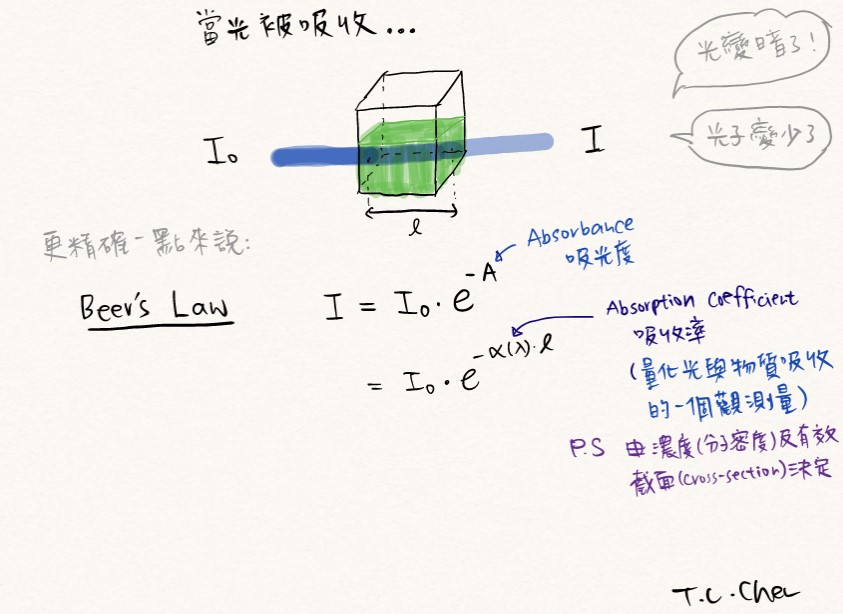 當光被吸收...
光變暗了!
光子變少了
I₀
I
l
更精確一點來說:
Beer's Law
I = I₀ · e^-A
Absorbance
吸光度
= I₀ · e^-α(λ)·l
Absorption Coefficient
吸收率
(量化光與物質吸收
的一個觀測量)
P.S 由濃度(分子密度)及有效
截面(cross-section)決定
T.C.Chen